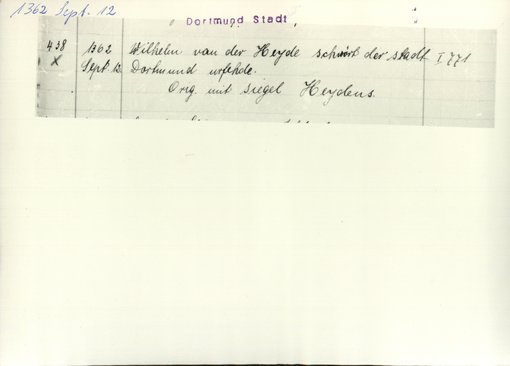 1362 Sept. 12
Dortmund Stadt
438 1362 Wilhelm van der Heyde schwört der Stadt I 771
X Sept 12. Dortmund urfehde.
Orig. mit Siegel Heydens.